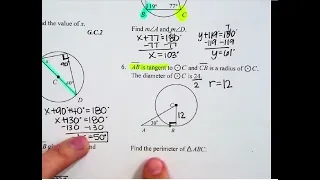 nd the value of x.
G.C.2
40
C
D
x+90+40=180
x+130=180°
-130 -130
=50°
119° 77°
B C
Find m∠A and m∠D.
x+77=180°
-77 -77
x=103°
y+119=180
-119 -119
y=61°
6. AB is tangent to ⊙C and CB is a radius of ⊙C.
The diameter of ⊙C is 24.
2
r=12
C
12
30°
A B
Find the perimeter of △ABC.